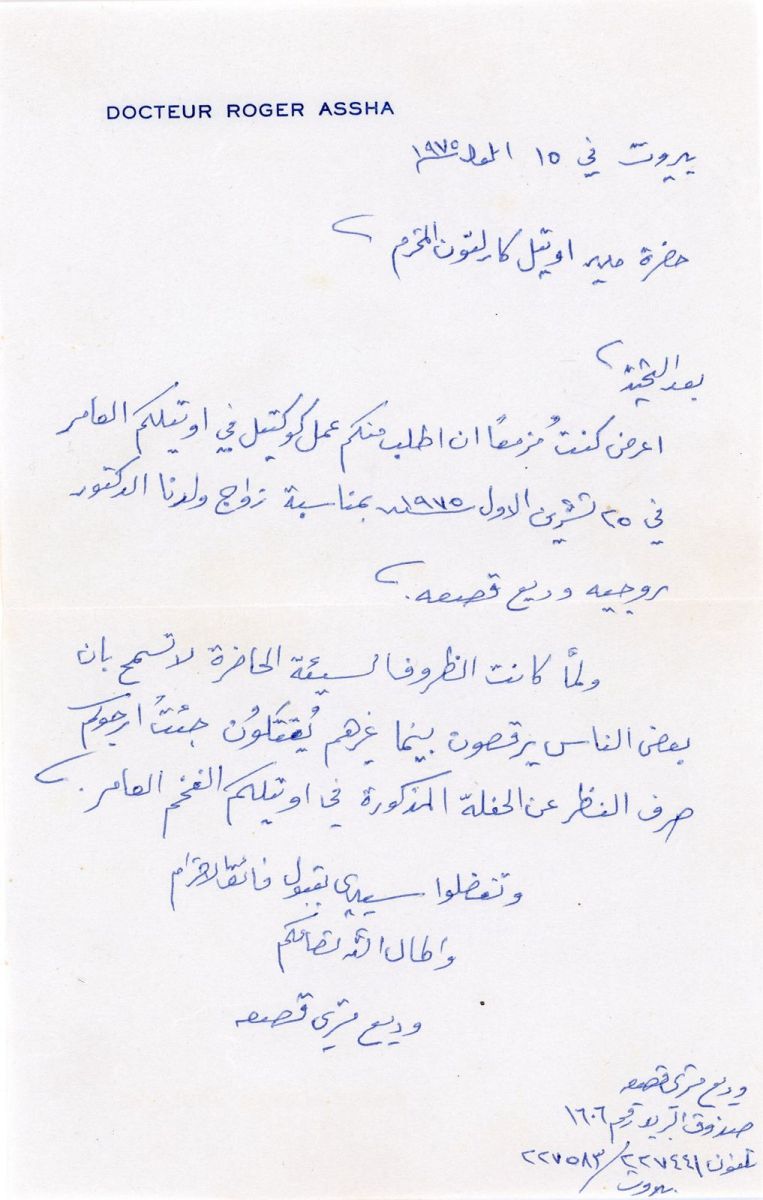 DOCTEUR ROGER ASSHA
بيروت في ١٥ ايلول ١٩٧٥
حضرة مدير اوتيل كارلتون المحترم
بعد التحية
اعرض كنتُ مزمعًا ان اطلب منكم عمل كوكتيل في اوتيلكم العامر
في ٢٥ تشرين الاول ١٩٧٥ بمناسبة زواج ولدنا الدكتور
روجيه وديع قصعه.
ولمّا كانت الظروف السيئة الحاضرة لا تسمح بان
بعض الناس يرقصون بينما غيرهم يُقتَلُون جئتُ ارجوكم
صرف النظر عن الحفلة المذكورة في اوتيلكم الفخم العامر.
وتفضلوا سيدي بقبول فائق الاحترام
واطال الله بقاءكم
وديع متري قصعه
وديع متري قصعه
صندوق البريد رقم ١٦٠٦
تلفون ٢٢٧٤٤١/٢٢٧٥٨٣
بيروت